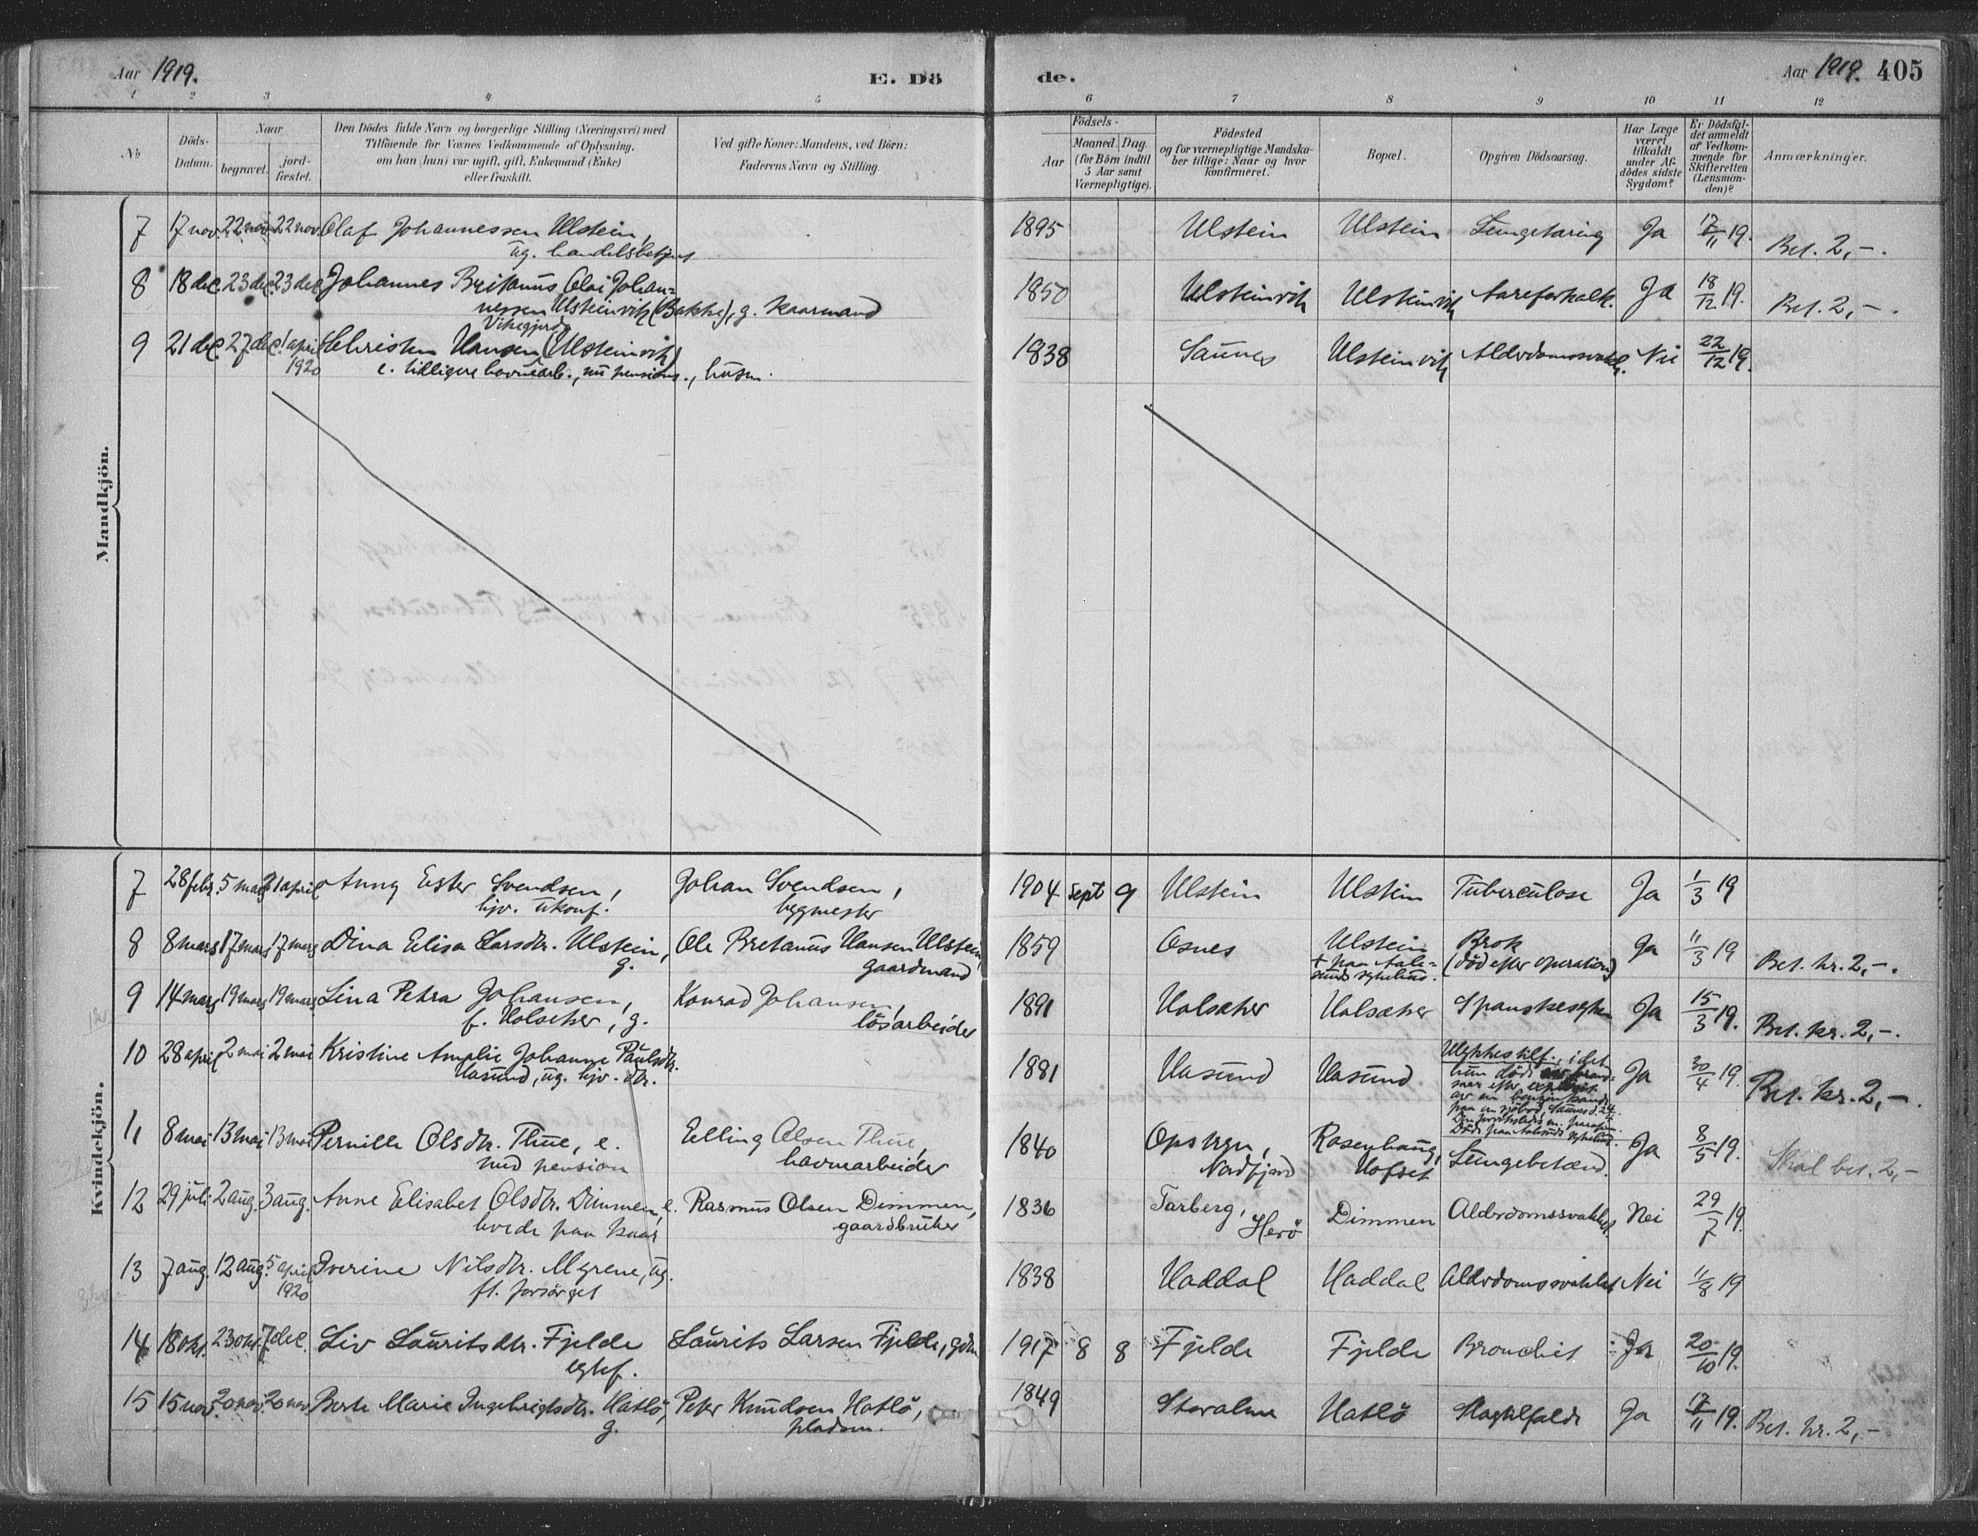 Aar 1919.
E. Dö
de.
Aar 1919. 405
1 2 3 4 5 6 7 8 9 10 11 12
No
Döds-
Datum.
Naar
begravet.
jord-
fæstet.
Den Dödes fulde Navn og borgerlige Stilling (Næringsvei) med
Tilföiende for Voxnes Vedkommende af Oplysning,
om han (hun) var ugift, gift, Enkemand (Enke)
eller fraskilt.
Ved gifte Koner: Mandens, ved Börn:
Faderens Navn og Stilling.
Födsels-
Aar
Maaned. Dag.
(for Börn indtil
5 Aar samt
Værnepligtige).
Födested
og for værnepligtige Mandska-
ber tillige: Naar og hvor
konfirmeret.
Bopæl.
Opgiven Dödsaarsag.
Har Læge
været
tilkaldt
under Af-
dödes sidste
Sygdom?
Er Dödsfal-
det anmeldt
af Vedkom-
mende for
Skifteretten
(Lensman-
den)?
Anmærkninger.
Mandkjön.
7 17 nov. 22 nov. 22 nov. Olaf Johannessen Ulstein, 1895 Ulstein Ulstein Lungetaring Ja 17/11 19. Bet. 2,-.
ug. handelsbetjent
8 18 dec. 23 dec. 23 dec. Johannes Britanus Olai Johan- 1850 Ulsteinvik Ulsteinvik Aareforkalk. Ja 18/12 19. Bet. 2,-.
nessen Ulsteinvik (Bakke), g. kaarmand
Vikegjerde
9 21 dec. 27 dec. 1 april Christen Hansen (Ulsteinvik) 1838 Saunes Ulsteinvik Alderdomssvakh. Nei 22/12 19.
1920 e. tidligere havnearb., nu pensions., husm.
Kvindekjön.
7 28 febr. 5 mars 21 april Anny Ester Svendsen, Johan Svendsen, 1904 Sept 9 Ulstein Ulstein Tuberculose Ja 1/3 19
hjv. ukonf. bygmester
8 8 mars 17 mars 17 mars Dina Elisa Larsdtr. Ulstein, Ole Bretanus Hansen Ulstein 1859 Osnes Ulstein Brok Ja 11/3 19 Bet. kr. 2,-.
g. gaardmand + paa Aale- (död efter operation)
sunds sykehus.
9 14 mars 19 mars 19 mars Lina Petra Johansen, Konrad Johansen, 1891 Holsæker Holsæker Spanskesyken Ja 15/3 19. Bet. kr. 2,-.
f. Holseker, g. lösarbeider
10 28 april 2 mai 2 mai Kristine Amalie Johanne Paulsdtr. 1881 Hasund Hasund Ulykkestilf., idet Ja 30/4 19. Bet. kr. 2,-.
Hasund, ug. hjv. dtr. hun döde av brand-
saar efter
av en benzinkande
11 8 mai 13 mai 13 mai Pernille Olsdtr. Thue, e. Elling Olsen Thue, 1840 Opstryn, Rosenhaug, Lungebetænd. Ja 8/5 19. Skal bet. 2,-
med pension havnearbeider Nordfjord Hofset
12 29 juli 2 aug. 3 aug. Anne Elisabet Olsdtr. Dimmen, e. Rasmus Olsen Dimmen, 1836 Tarberg, Dimmen Alderdomssvakhet Nei 29/7 19.
levede paa kaar gaardbruker Herö
13 7 aug. 12 aug. 5 april Iverine Nilsdtr. Myrene, ug. 1838 Haddal Haddal Alderdomssvakhet Nei 11/8 19
1920 ft. forsörget
14 18 okt. 23 okt. 7 dec. Liv Lauritsdtr. Fjelde Laurits Larsen Fjelde, gdm 1917 8 8 Fjelde Fjelde Bronchit Ja 20/10 19.
egtef.
15 15 nov. 20 nov. 20 nov. Berte Marie Ingebrigtsdtr. Hatlö, Peter Knudsen Hatlö, 1849 Hatlö Ja 17/11 19. Bet. kr. 2,-
g. pladsm.